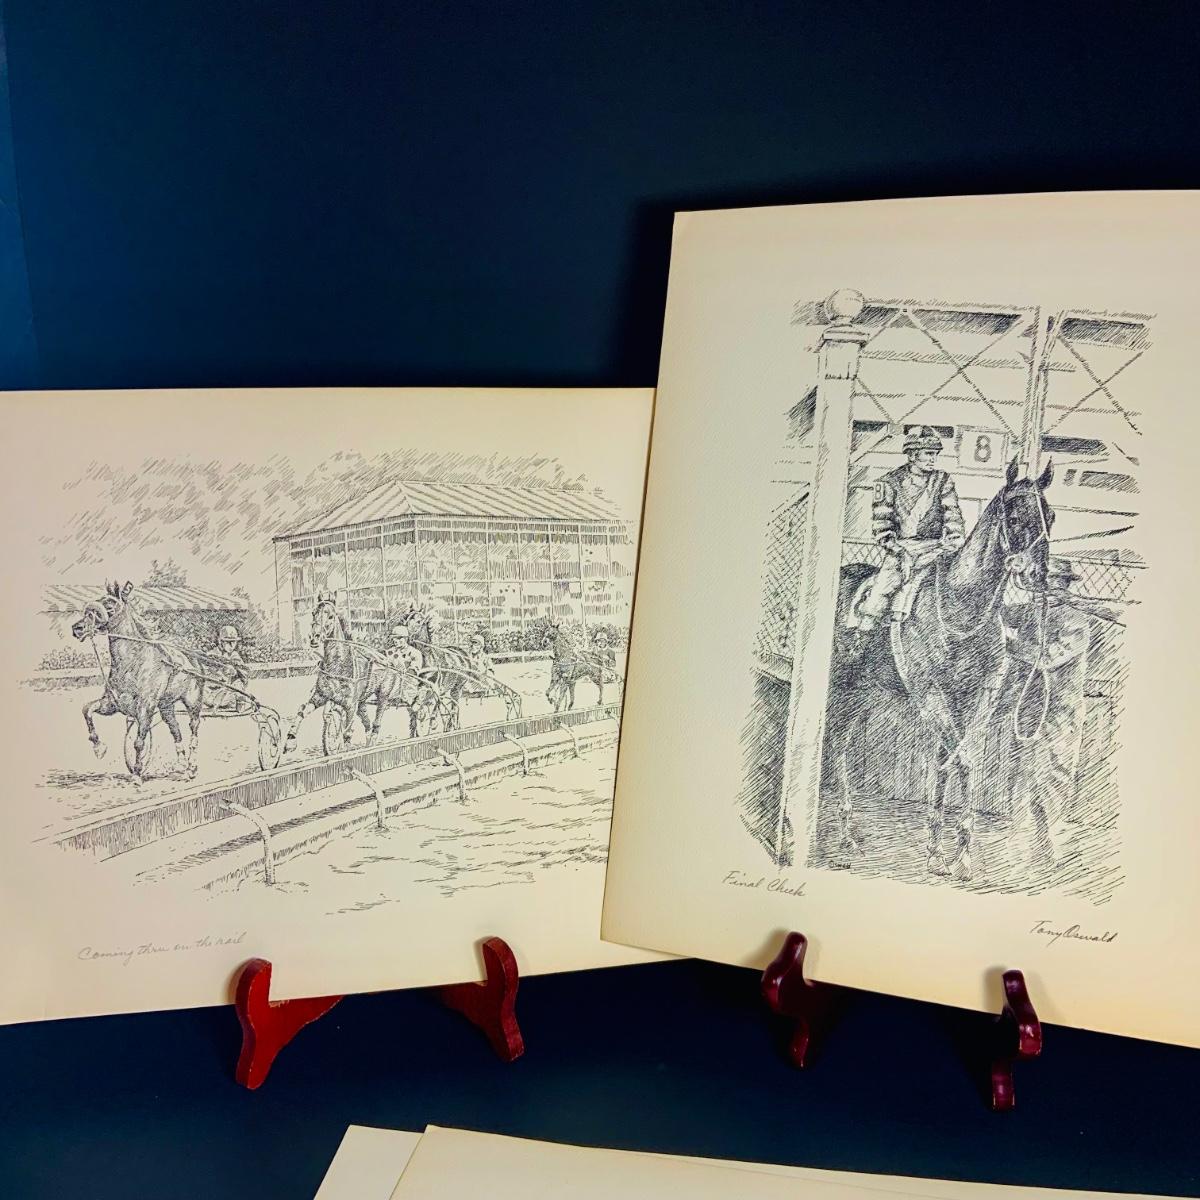 Coming thru on the rail
8
8
Oswald
Final Check
Tony Oswald